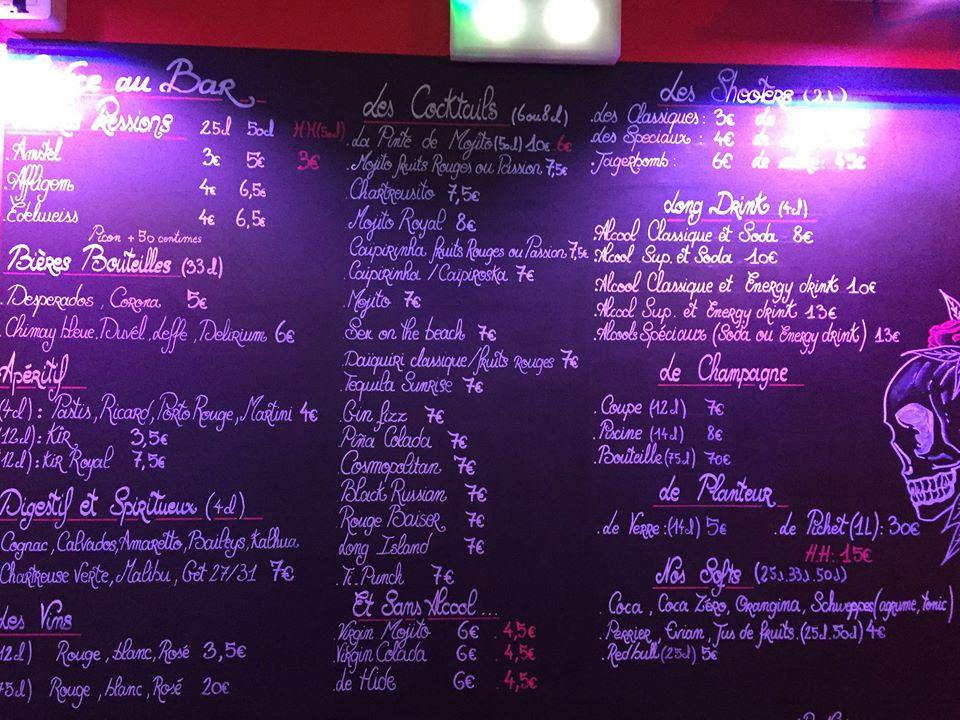 au Bar
Pressions 25cl 50cl HH(50cl)
.Amstel 3€ 5€ 3€
.Affligem 4€ 6,5€
.Edelweiss 4€ 6,5€
Picon + 50 centimes
Bières Bouteilles (33cl)
.Desperados, Corona 5€
.Chimay bleue, Duvel, Leffe, Delirium 6€
Apéritif
(4cl): Pastis, Ricard, Porto Rouge, Martini 4€
(12cl): Kir 3,5€
(12cl): Kir Royal 7,5€
Digestif et Spiritueux (4cl)
Cognac, Calvados, Amaretto, Baileys, Kalhua
Chartreuse Verte, Malibu, Get 27/31 7€
Les Vins
(12cl) Rouge, blanc, Rosé 3,5€
(75cl) Rouge, blanc, Rosé 20€
Les Cocktails (6ou8cl)
.La Pinte de Mojito(50cl) 10€ 6€
.Mojito fruits Rouges ou Passion 7,5€
.Chartreusito 7,5€
.Mojito Royal 8€
.Caipirinha fruits Rouges ou Passion 7,5€
.Caipirinha / Caipiroska 7€
.Mojito 7€
.Sex on the beach 7€
.Daiquiri classique/fruits rouges 7€
.Tequila Sunrise 7€
.Gin fizz 7€
.Piña Colada 7€
.Cosmopolitan 7€
.Black Russian 7€
.Rouge Baiser 7€
.Long Island 7€
.Ti Punch 7€
Et Sans Alcool ...
.Virgin Mojito 6€ .4,5€
.Virgin Colada 6€ .4,5€
.Le Hide 6€ .4,5€
Les Shooters (2cl)
.Les Classiques: 3€
.Les Speciaux: 4€
.Jagerbomb: 6€ 45€
Long Drink (4cl)
.Alcool Classique et Soda 8€
.Alcool Sup. et Soda 10€
.Alcool Classique et Energy drink 10€
.Alcool Sup. et Energy drink 13€
.Alcools Spéciaux (Soda ou Energy drink) 13€
Le Champagne
.Coupe (12cl) 7€
.Piscine (14cl) 8€
.Bouteille (75cl) 70€
Le Planteur
.Le Verre: (14cl) 5€ .Le Pichet (1L): 30€
H.H: 15€
Nos Softs (25cl.33cl.50cl)
.Coca, Coca Zéro, Orangina, Schweppes(agrume, tonic)
.Perrier, Evian, Jus de fruits.(25cl.50cl) 4€
.Redbull (25cl) 5€